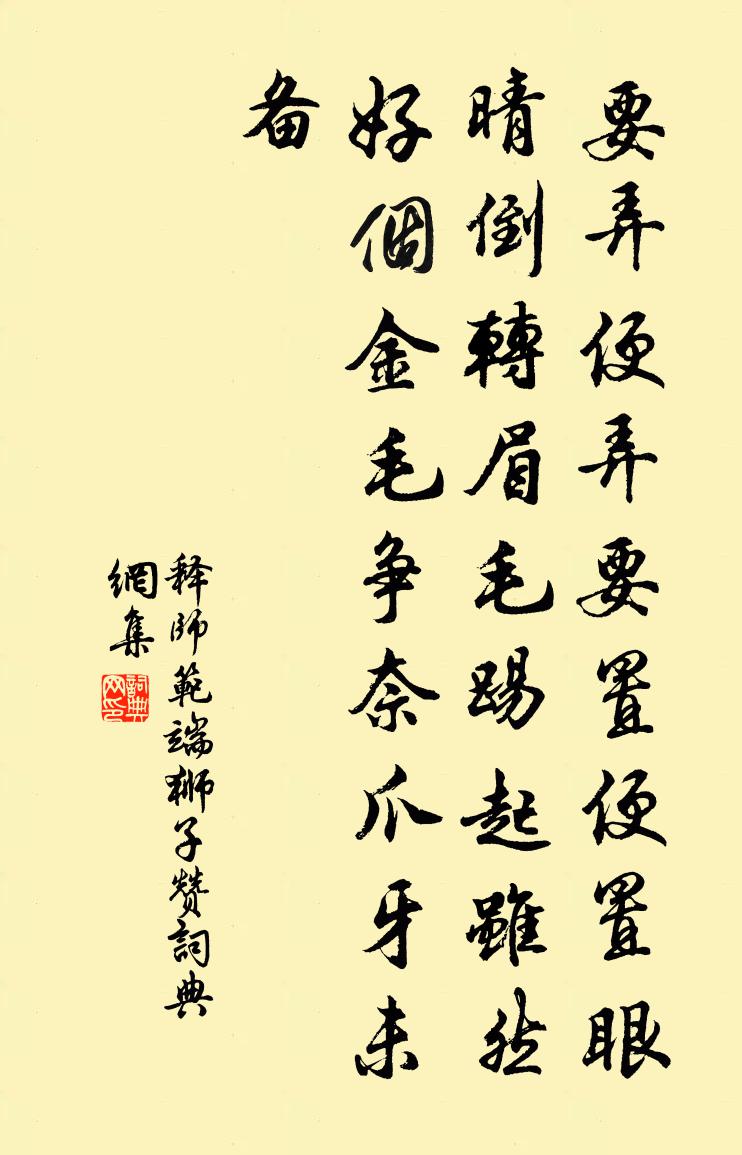 要弄便弄要置便置眼
睛倒轉眉毛踢起雖然
好個金毛争奈爪牙未
备
释師範端狮子赞詞典
網集
詞典
网印